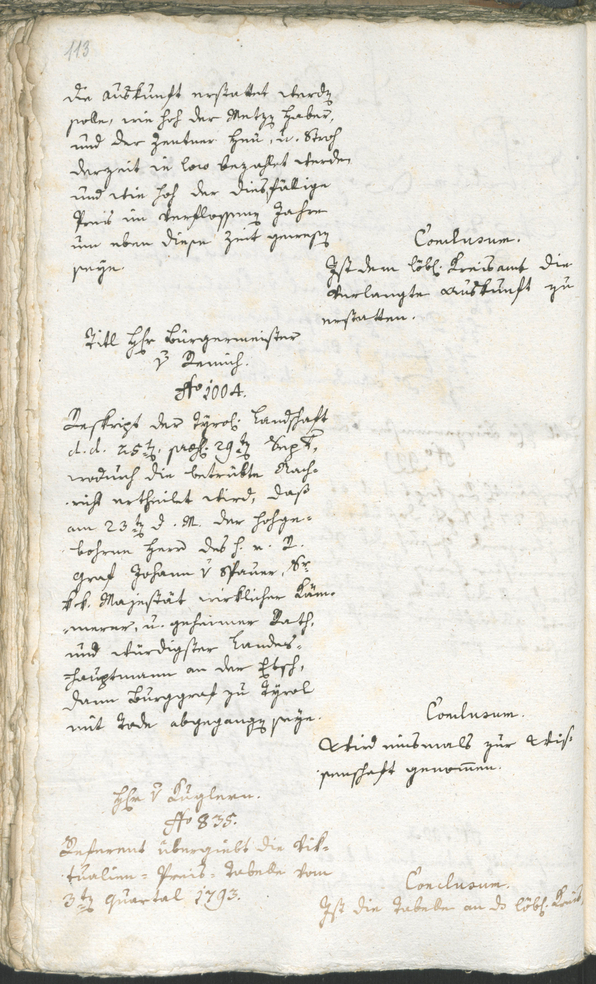 113
die Auskunft erstattet werden
solle, wie hoch der Metzen Haber,
und der Zentner Heu, u. Stroh
derzeit in loco bezahlet werden
und wie hoch der diesfällige
Preis im verflossenen Jahre
um eben diese Zeit gewesen
seye.
Conclusum.
Ist dem löbl. Kreisamt die
verlangte Auskunft zu
erstatten.
Titl Hr Bürgermeister
v
No 1004.
Reskript der Tyrol. Landschaft
d.d. 25ten, praes. 29ten Sept.,
wodurch die betrübte Nach-
richt ertheilet wird, daß
am 23ten d. M. der hochge-
bohrne Herr des h. r. R.
Graf Johann v Spauer, Sr
k.k. Majestät wirklicher Käm-
merer, u. geheimer Rath,
und würdigster Landes-
hauptmann an der Etsch,
dann Burggraf zu Tyrol
mit Tode abgegangen seye.
Conclusum.
Wird einsmals zur Wis-
senschaft genommen.
Hr v Kuglern.
No 835.
Referens übergiebt die Vik-
tualien-Preis-Tabelle vom
3ten Quartal 1793.
Conclusum.
Ist die Tabelle an ds löbl. Kreis